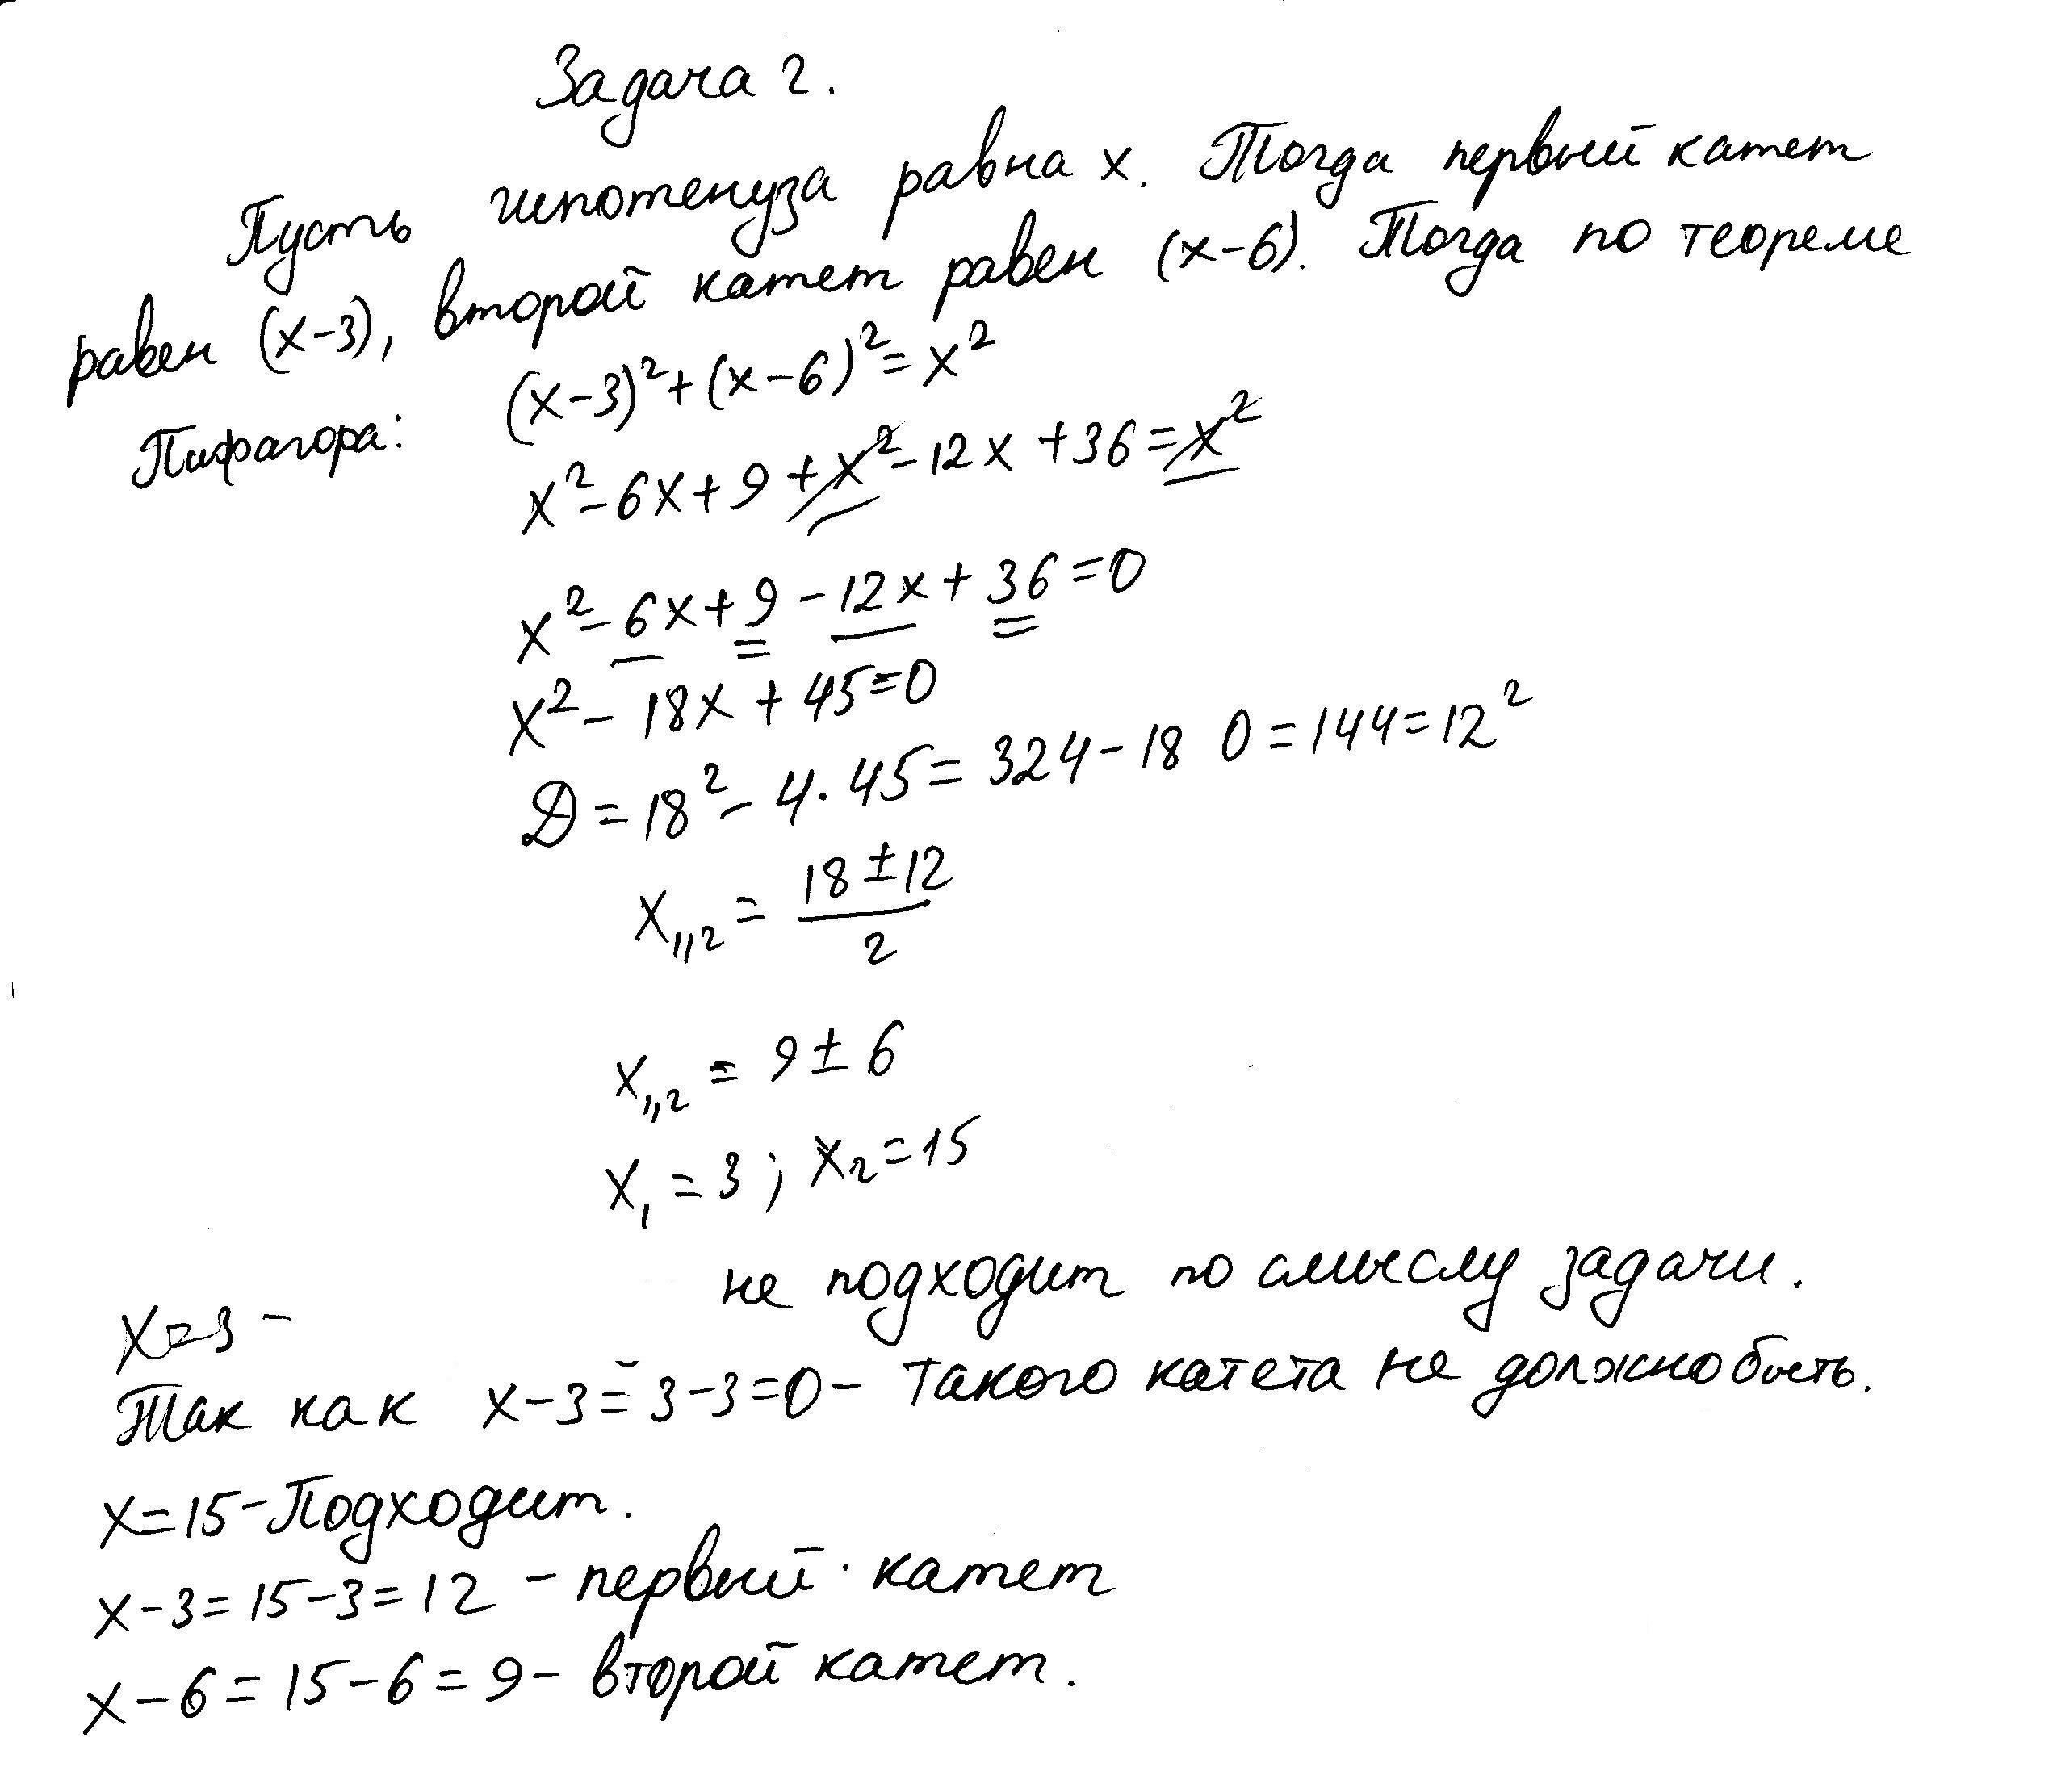 Задача 2.
Пусть гипотенуза равна x. Тогда первый катет
равен (x-3), второй катет равен (x-6). Тогда по теореме
Пифагора: (x-3)²+(x-6)²=x²
x²-6x+9+x²-12x+36=x²
x²-6x+9-12x+36=0
x²-18x+45=0
Д=18²-4·45=324-180=144=12²
x₁,₂=(18±12)/2
x₁,₂=9±6
x₁=3; x₂=15
x=3 - не подходит по смыслу задачи.
Так как x-3=3-3=0- такого катета не должно быть.
x=15-Подходит.
x-3=15-3=12 - первый катет
x-6=15-6=9- второй катет.